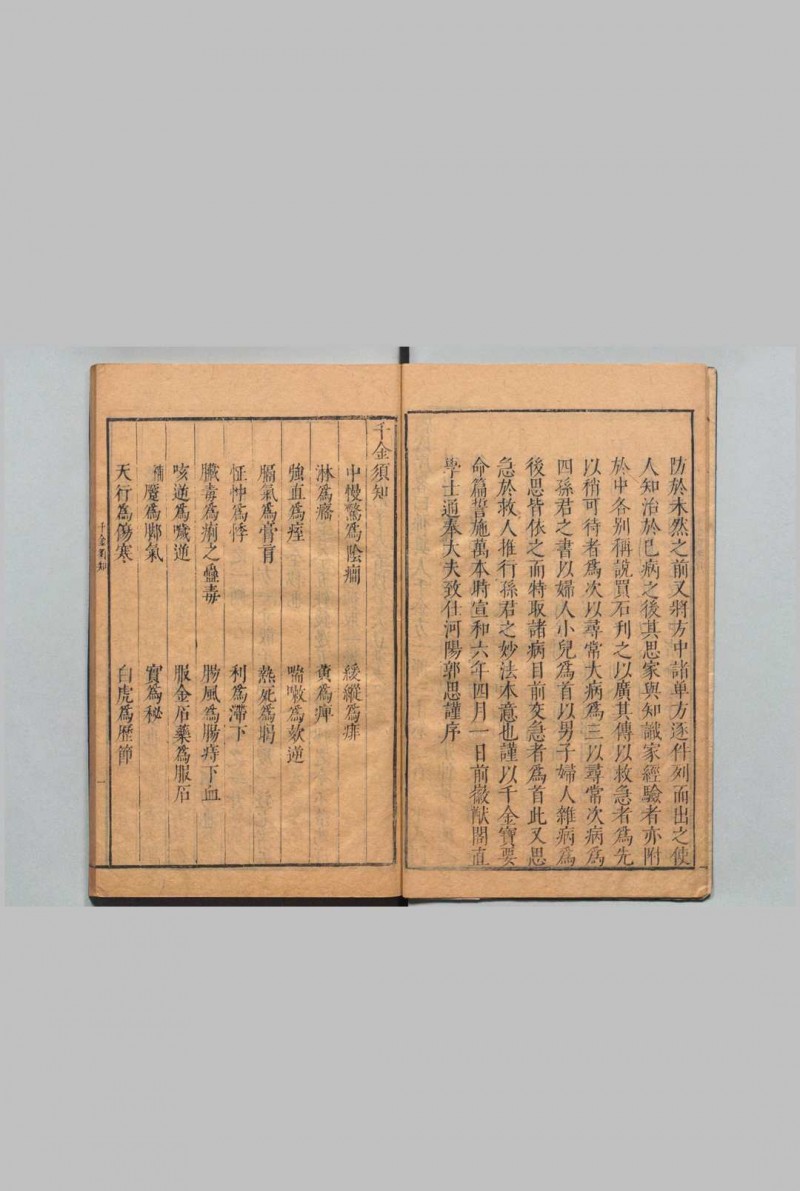 防於未然之前又將方中諸单方逐件列而出之使
人知治於已病之後其思家與知識家經驗者亦附
於中各别稱說買石刋之以廣其傳以救急者為先
以稍可待者為次以尋常大病為三以尋常次病為
四孫君之書以婦人小兒為首以男子婦人雜病為
後思皆依之而特取諸病目前交急者為首此又思
急於救人推行孫君之妙法本意也謹以千金寶要
命篇誓施萬本時宣和六年四月一日前徽猷閣直
學士通奉大夫致仕河陽郭思謹序
千金須知
中慢驚為陰癎 緩縱為痱
淋為癃 黄為疸
強直為痙 喘嗽為欬逆
膈氣為膏肓 熱死為暍
怔忡為悸 利為滯下
臟毒為痢之蠱毒 腸風為腸痔下血
咳逆為噦逆 服金石藥為服石
為脚氣 實為秘
天行為傷寒 白虎為歷節
千金須知
一